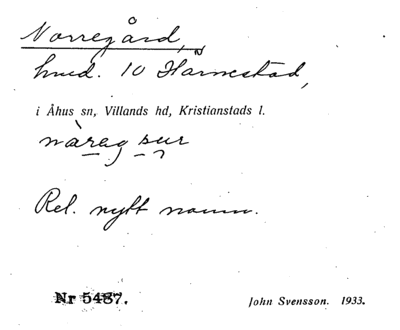 Norregård,
hmd. 10 Härnestad,
i Åhus sn, Villands hd, Kristianstads l.
Rel. nytt namn.
Nr 5487.
John Svensson. 1933.